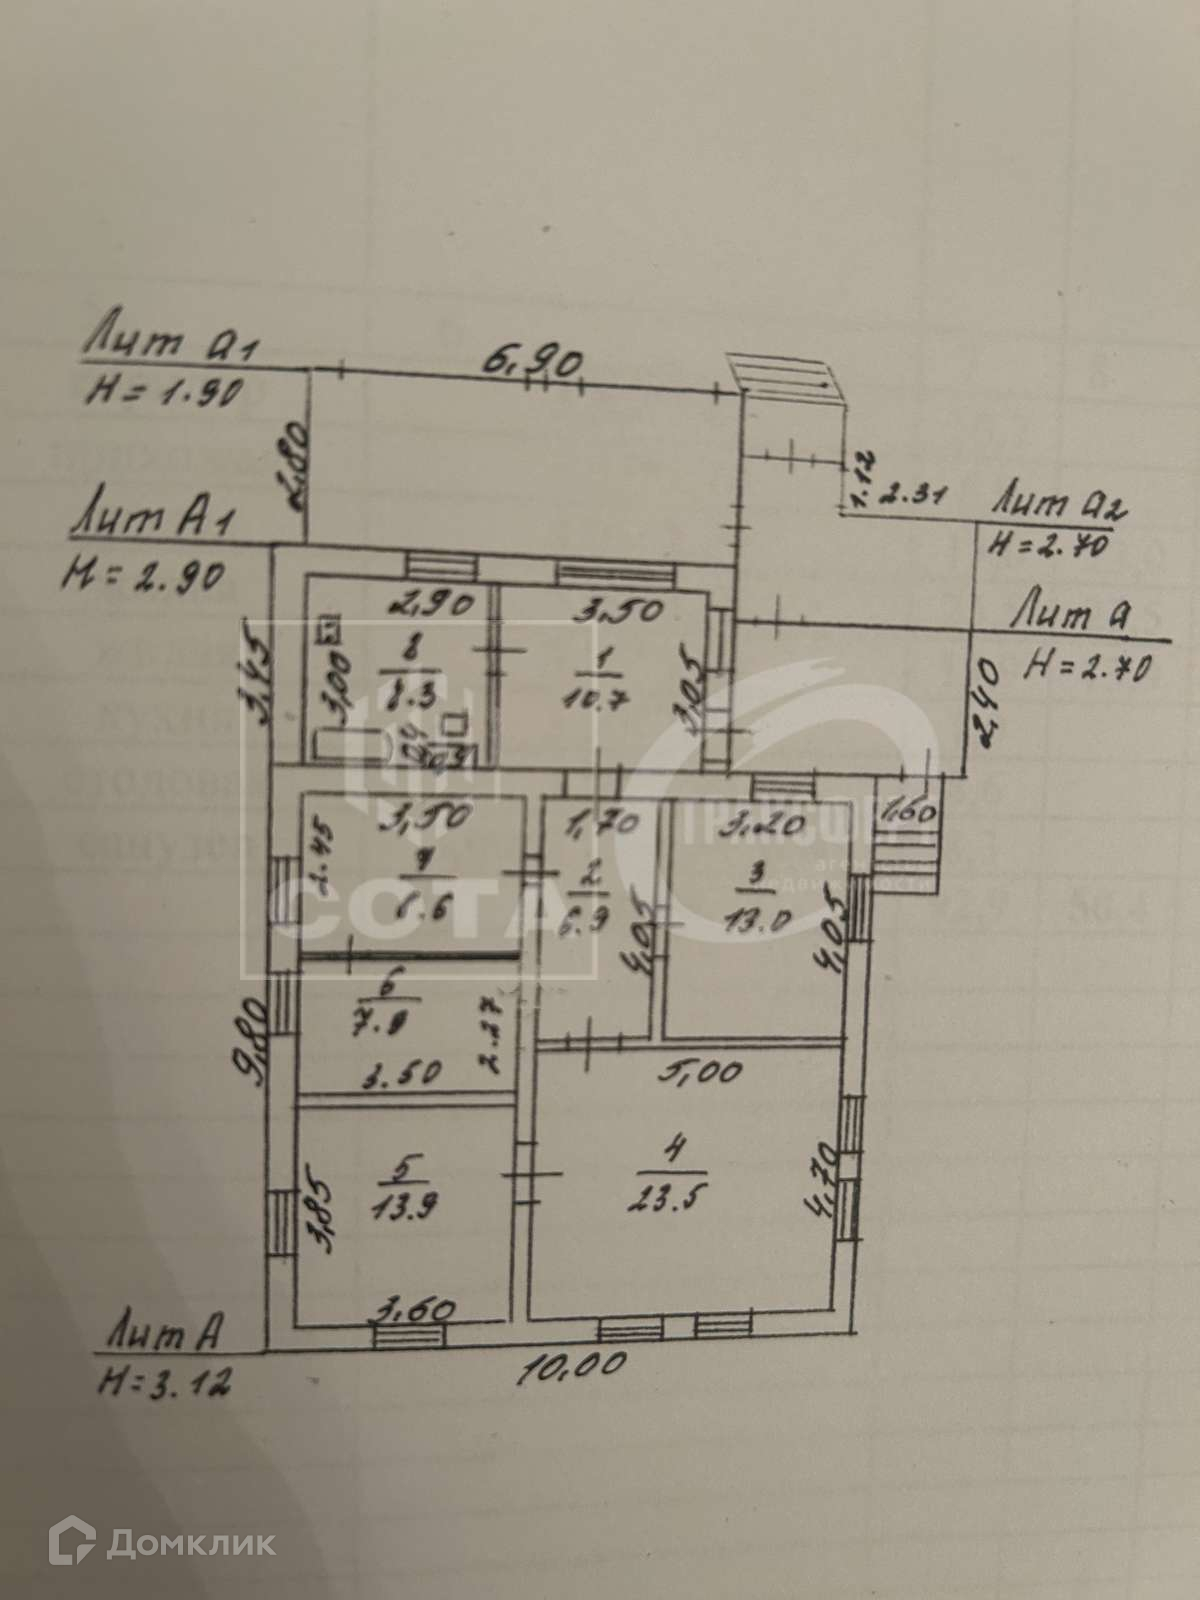 Лит а1
Н=1.90
6,90
2,80
1.12
2.31
Лит а2
Н=2.70
Лит А1
Н=2.90
Лит а
Н=2.70
2,40
3,45
2,90
3,50
3,00
8
8.3
1
10.7
3,05
1,60
3,50
2.45
6.6
1,70
2
6.9
4,05
3,20
3
13.0
4,05
СОТА
9,80
6
7.9
2.27
3.50
5,00
5
13.9
3,85
3,60
4
23.5
4,70
Лит А
Н=3.12
10.00
Домклик